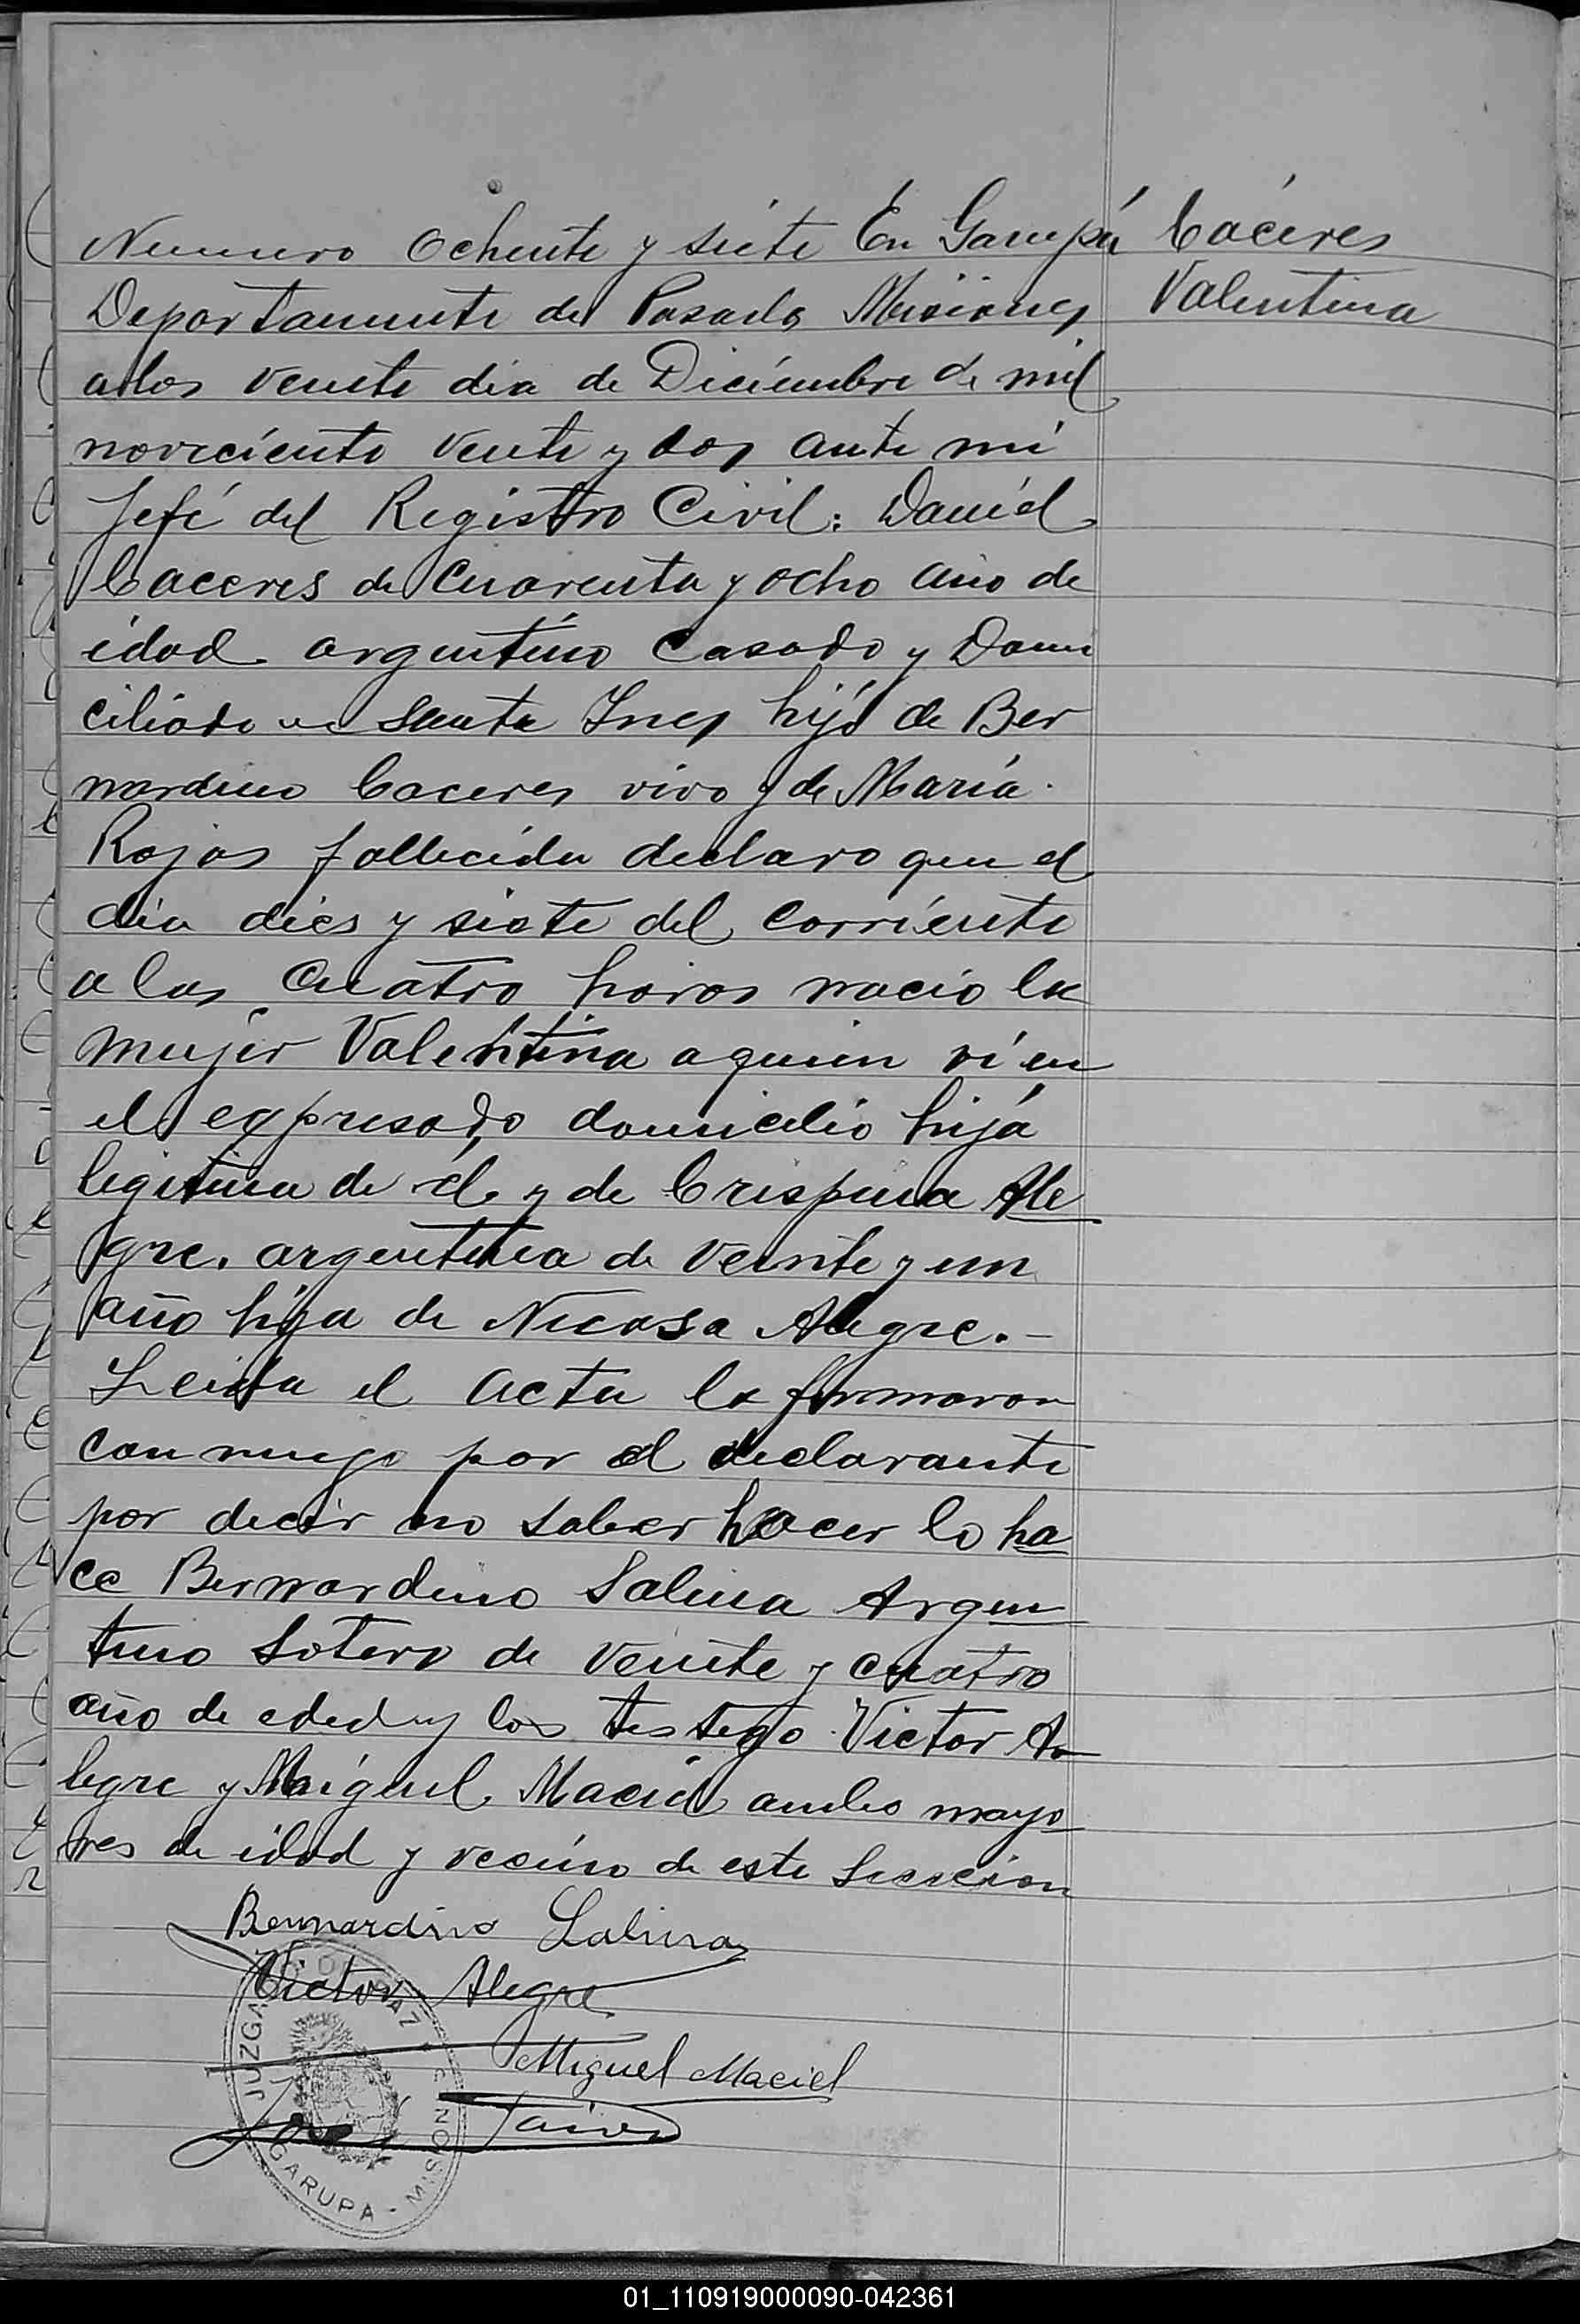 Numero Ochenta y siete En Garupá
Departamento de Posadas Misiones
a los veinte dia de Diciembre de mil
noveciento veinte y dos ante mi
Jefe del Registro Civil: Daniel
Caceres de cuarenta y ocho año de
idad argentino Casado y Domi
ciliado en Santa Ines hijo de Ber
nardino Caceres vivo y de María
Rojas fallecida declaro que el
dia dies y siete del corriente
a las cuatro horas nacio la
mujer Valentina a quien vi en
el expresado domicilio hija
legitima de él y de Crispina Ale
gre. argentina de veinte y un
año hija de Nicasa Alegre.-
Leida el acta la firmaron
conmigo por el declarante
por decir no saber hacer lo ha
ce Bernardino Salina Argen
tino Sotero de veinte y cuatro
año de edad y los testego Victor A
legre y Miguel Maciel ambo mayo
res de idad y vecino de este Seccion
Bernardino Salinas
Victor Alegre
Miguel Maciel
Cáceres
Valentina
JUZGADO DE PAZ
GARUPA - MISIONES
01_110919000090-042361